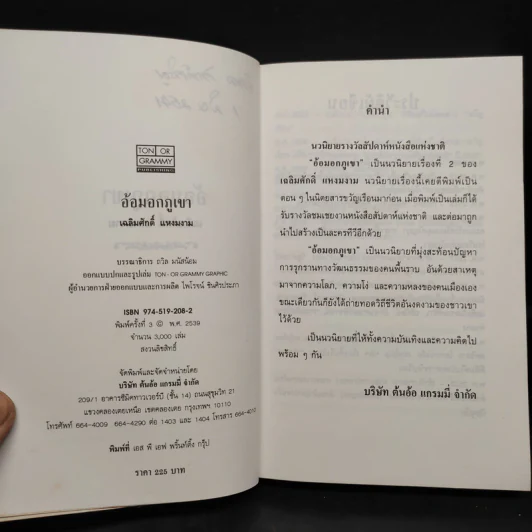 TON OR
GRAMMY
PUBLISHING
อ้อมอกภูเขา
เฉลิมศักดิ์ แหงมงาม
บรรณาธิการ ถวิล มนัสน้อม
ออกแบบปกและรูปเล่ม TON-OR GRAMMY GRAPHIC
ผู้อำนวยการฝ่ายออกแบบและการผลิต ไพโรจน์ ธันศิรประภา
ISBN 974-519-208-2
พิมพ์ครั้งที่ 3 © พ.ศ. 2539
จำนวน 3,000 เล่ม
สงวนลิขสิทธิ์
จัดพิมพ์และจัดจำหน่ายโดย
บริษัท ต้นอ้อ แกรมมี่ จำกัด
209/1 อาคารซีมิคทาวเวอร์บี (ชั้น 14) ถนนสุขุมวิท 21
แขวงคลองเตยเหนือ เขตคลองเตย กรุงเทพฯ 10110
โทรศัพท์ 664-4009 664-4290 ต่อ 1403 และ 1404 โทรสาร
พิมพ์ที่ เอส พี เอฟ พริ้นท์ติ้ง กรุ๊ป
ราคา 225 บาท
คำนำ
นวนิยายรางวัลสัปดาห์หนังสือแห่งชาติ
"อ้อมอกภูเขา" เป็นนวนิยายเรื่องที่ 2 ของ
เฉลิมศักดิ์ แหงมงาม นวนิยายเรื่องนี้เคยตีพิมพ์เป็น
ตอน ๆ ในนิตยสารขวัญเรือนมาก่อน เมื่อพิมพ์เป็นเล่มก็ได้
รับรางวัลชมเชยงานหนังสือสัปดาห์แห่งชาติ และต่อมาถูก
นำไปสร้างเป็นละครทีวีอีกด้วย
"อ้อมอกภูเขา" เป็นนวนิยายที่มุ่งสะท้อนปัญหา
การรุกรานทางวัฒนธรรมของคนพื้นราบ อันด้วยสาเหตุ
มาจากความโลภ, ความโง่ และความหลงของคนเมืองเอง
ขณะเดียวกันก็ยังได้ถ่ายทอดวิถีชีวิตอันงดงามของชาวเขา
ไว้ด้วย
เป็นนวนิยายที่ให้ทั้งความบันเทิงและความคิดไป
พร้อม ๆ กัน
บริษัท ต้นอ้อ แกรมมี่ จำกัด